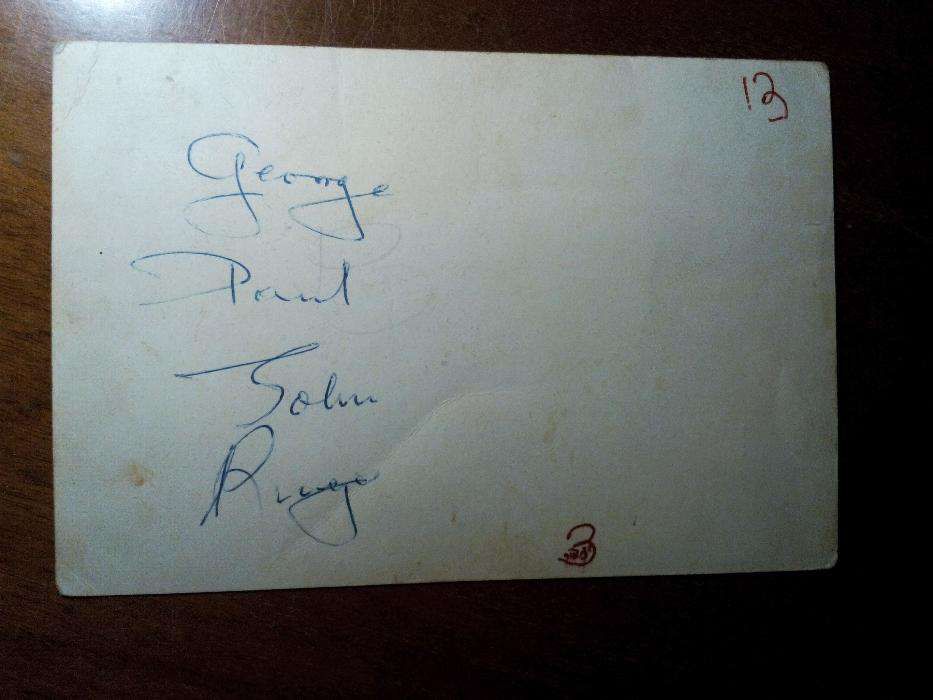 13
George
Paul
John
Ringo
3